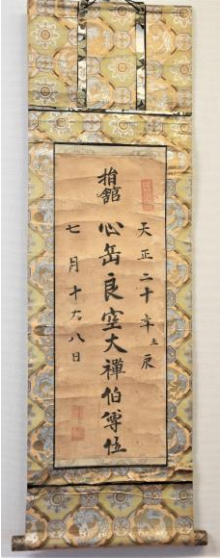 天正二十年壬辰
捐舘
心岳良空大禪伯尊位
七月十八日